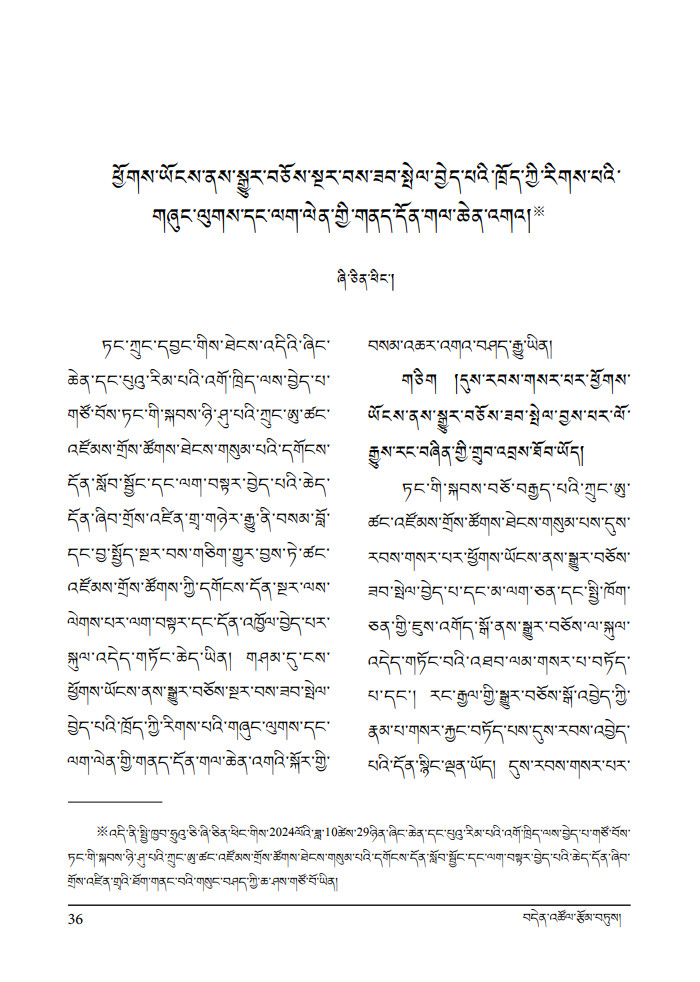 ཕྱོགས་ཡོངས་ནས་སྒྱུར་བཅོས་སྔར་བས་ཟབ་སྤེལ་བྱེད་པའི་ཁྲོད་ཀྱི་རིགས་པའི་
གཞུང་ལུགས་དང་ལག་ལེན་གྱི་གནད་དོན་གལ་ཆེན་འགའ།※
ཞི་ཅིན་ཕིང་།
ཏང་ཀྲུང་དབྱང་གིས་ཐེངས་འདིའི་ཞིང་
ཆེན་དང་པུའུ་རིམ་པའི་འགོ་ཁྲིད་ལས་བྱེད་པ་
གཙོ་བོས་ཏང་གི་སྐབས་ཉི་ཤུ་པའི་ཀྲུང་ཨུ་ཚང་
འཛོམས་གྲོས་ཚོགས་ཐེངས་གསུམ་པའི་དགོངས་
དོན་སློབ་སྦྱོང་དང་ལག་བསྟར་བྱེད་པའི་ཆེད་
དོན་ཞིབ་གྲོས་འཛིན་གྲྭ་གཉེར་རྒྱུ་ནི་བསམ་བློ་
དང་བྱ་སྤྱོད་སྔར་བས་གཅིག་གྱུར་བྱས་ཏེ་ཚང་
འཛོམས་གྲོས་ཚོགས་ཀྱི་དགོངས་དོན་སྔར་ལས་
ལེགས་པར་ལག་བསྟར་དང་དོན་འཁྱོལ་བྱེད་པར་
སྐུལ་འདེད་གཏོང་ཆེད་ཡིན། གཤམ་དུ་ངས་
ཕྱོགས་ཡོངས་ནས་སྒྱུར་བཅོས་སྔར་བས་ཟབ་སྤེལ་
བྱེད་པའི་ཁྲོད་ཀྱི་རིགས་པའི་གཞུང་ལུགས་དང་
ལག་ལེན་གྱི་གནད་དོན་གལ་ཆེན་འགའི་སྐོར་གྱི་
བསམ་འཆར་འགའ་བཤད་རྒྱུ་ཡིན།
གཅིག །དུས་རབས་གསར་པར་ཕྱོགས་
ཡོངས་ནས་སྒྱུར་བཅོས་ཟབ་སྤེལ་བྱས་པར་ལོ་
རྒྱུས་རང་བཞིན་གྱི་གྲུབ་འབྲས་ཐོབ་ཡོད།
ཏང་གི་སྐབས་བཅོ་བརྒྱད་པའི་ཀྲུང་ཨུ་
ཚང་འཛོམས་གྲོས་ཚོགས་ཐེངས་གསུམ་པས་དུས་
རབས་གསར་པར་ཕྱོགས་ཡོངས་ནས་སྒྱུར་བཅོས་
ཟབ་སྤེལ་བྱེད་པ་དང་མ་ལག་ཅན་དང་སྤྱི་ཁོག་
ཅན་གྱི་ཇུས་འགོད་སྒོ་ནས་སྒྱུར་བཅོས་ལ་སྐུལ་
འདེད་གཏོང་བའི་འཐབ་ལམ་གསར་པ་བཏོད་
པ་དང་། རང་རྒྱལ་གྱི་སྒྱུར་བཅོས་སྒོ་འབྱེད་ཀྱི་
རྣམ་པ་གསར་རྐྱང་བཏོད་པས་དུས་རབས་འབྱེད་
པའི་དོན་སྙིང་ལྡན་ཡོད། དུས་རབས་གསར་པར་
※འདི་ནི་སྤྱི་ཁྱབ་ཧྲུའུ་ཅི་ཞི་ཅིན་ཕིང་གིས་2024ལོའི་ཟླ་10ཚེས་29ཉིན་ཞིང་ཆེན་དང་པུའུ་རིམ་པའི་འགོ་ཁྲིད་ལས་བྱེད་པ་གཙོ་བོས་
ཏང་གི་སྐབས་ཉི་ཤུ་པའི་ཀྲུང་ཨུ་ཚང་འཛོམས་གྲོས་ཚོགས་ཐེངས་གསུམ་པའི་དགོངས་དོན་སློབ་སྦྱོང་དང་ལག་བསྟར་བྱེད་པའི་ཆེད་དོན་ཞིབ་
གྲོས་འཛིན་གྲྭའི་ཐོག་གནང་བའི་གསུང་བཤད་ཀྱི་ཆ་ཤས་གཙོ་བོ་ཡིན།
36
བདེན་འཚོལ་རྩོམ་བཏུས།